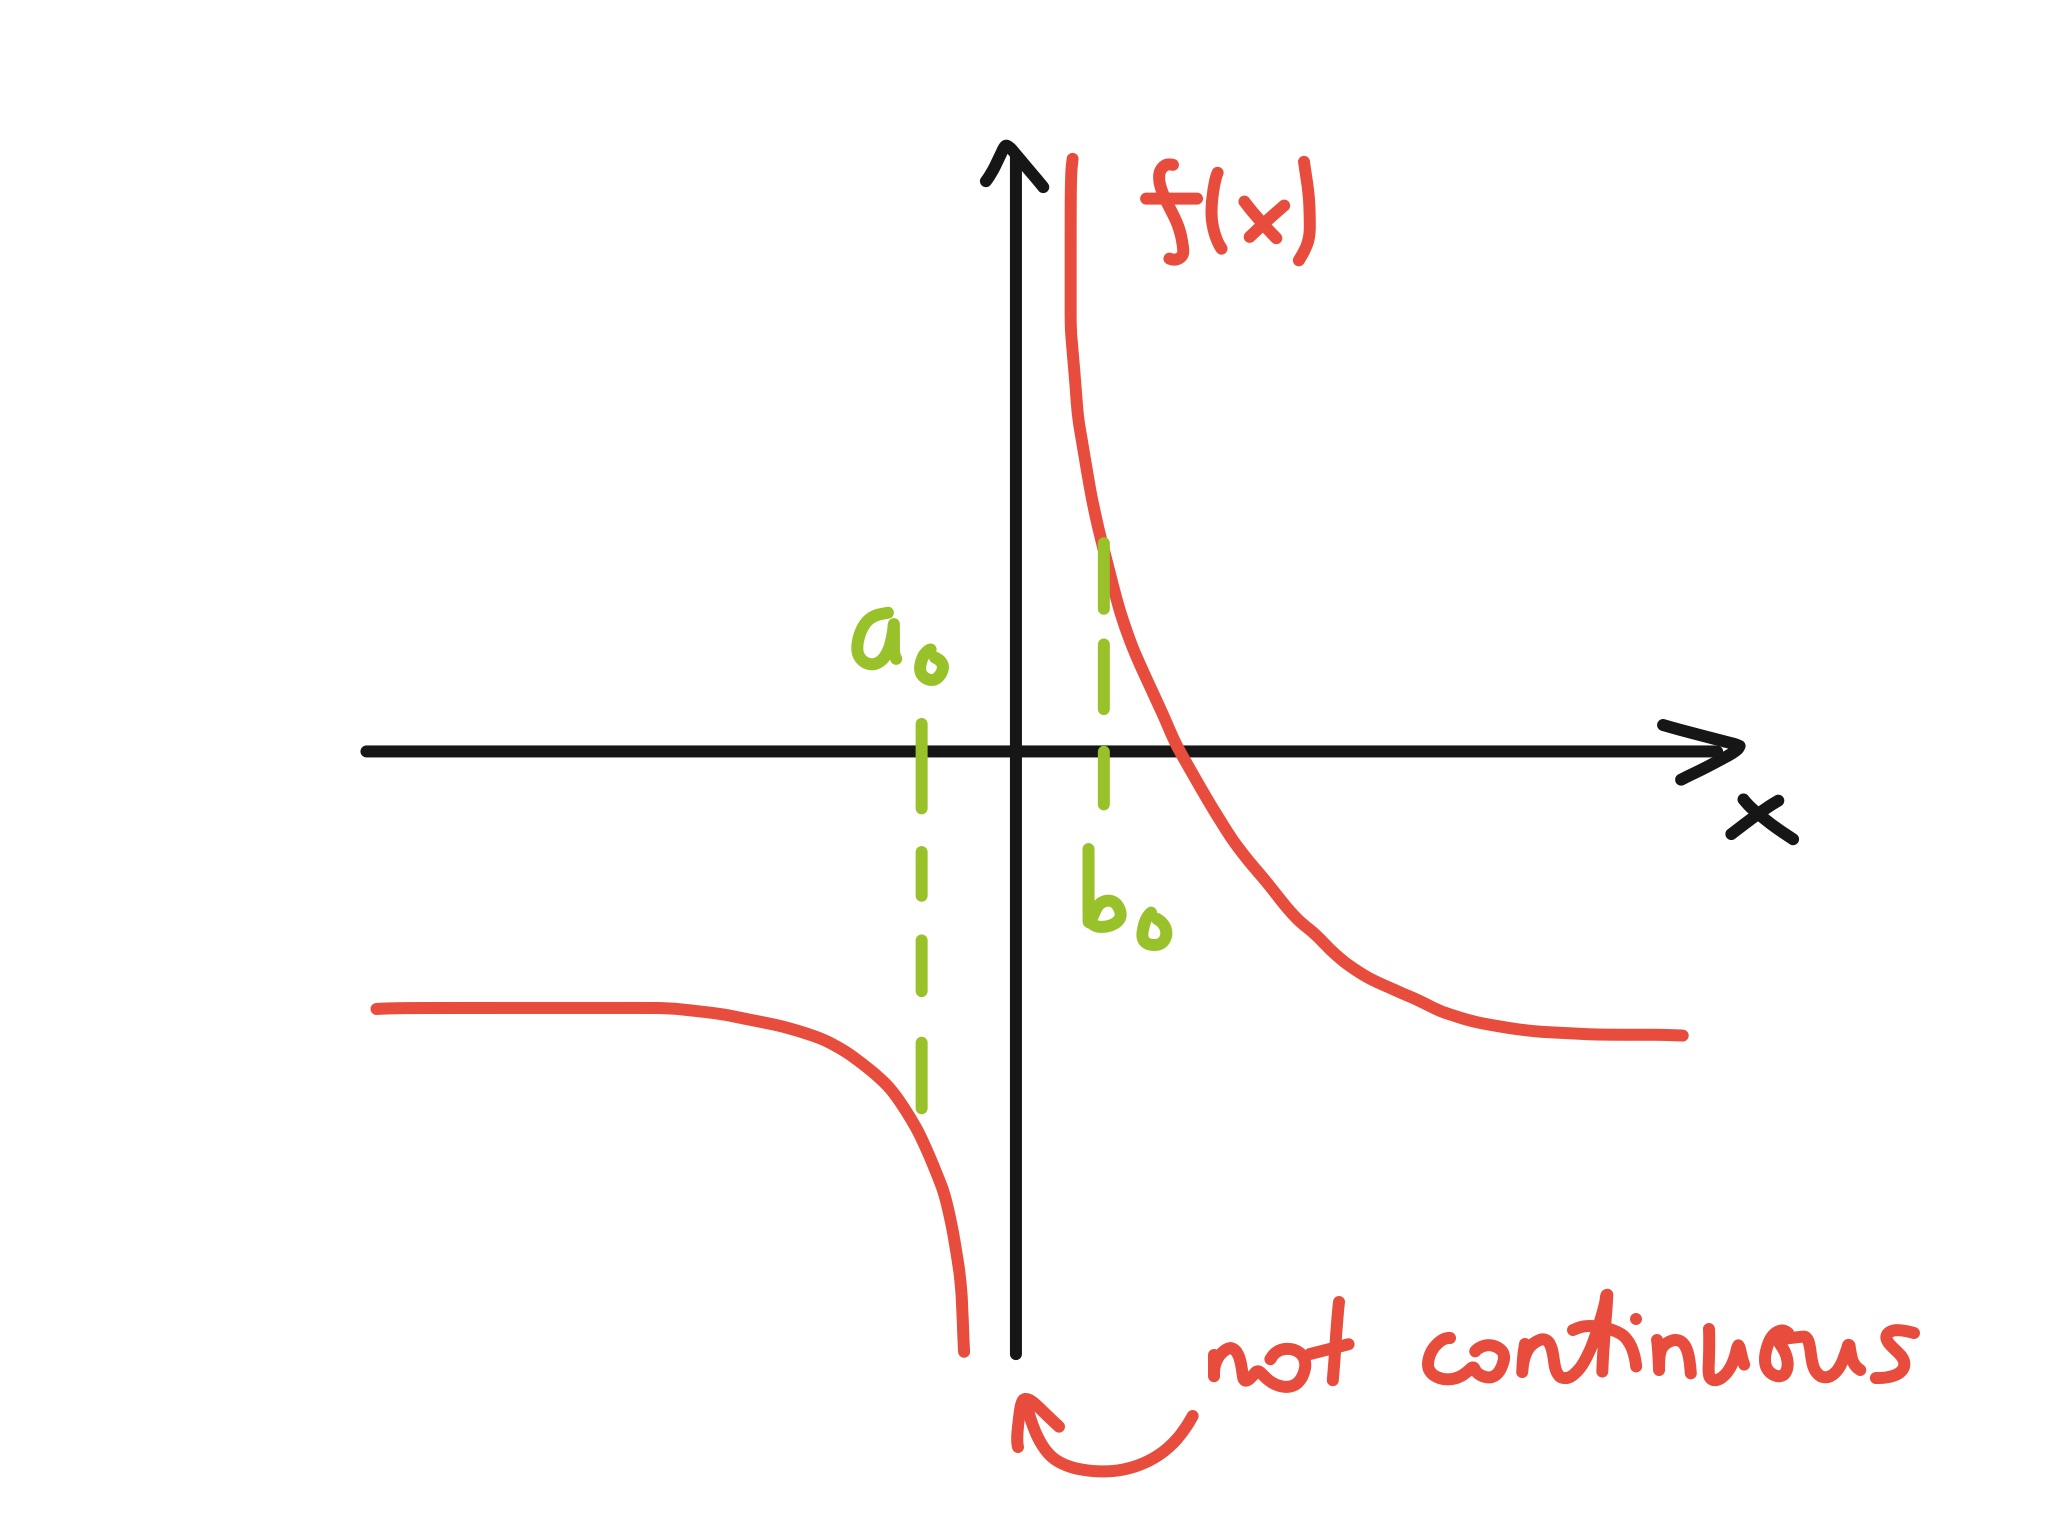 f(x)
a₀
x
b₀
not continuous